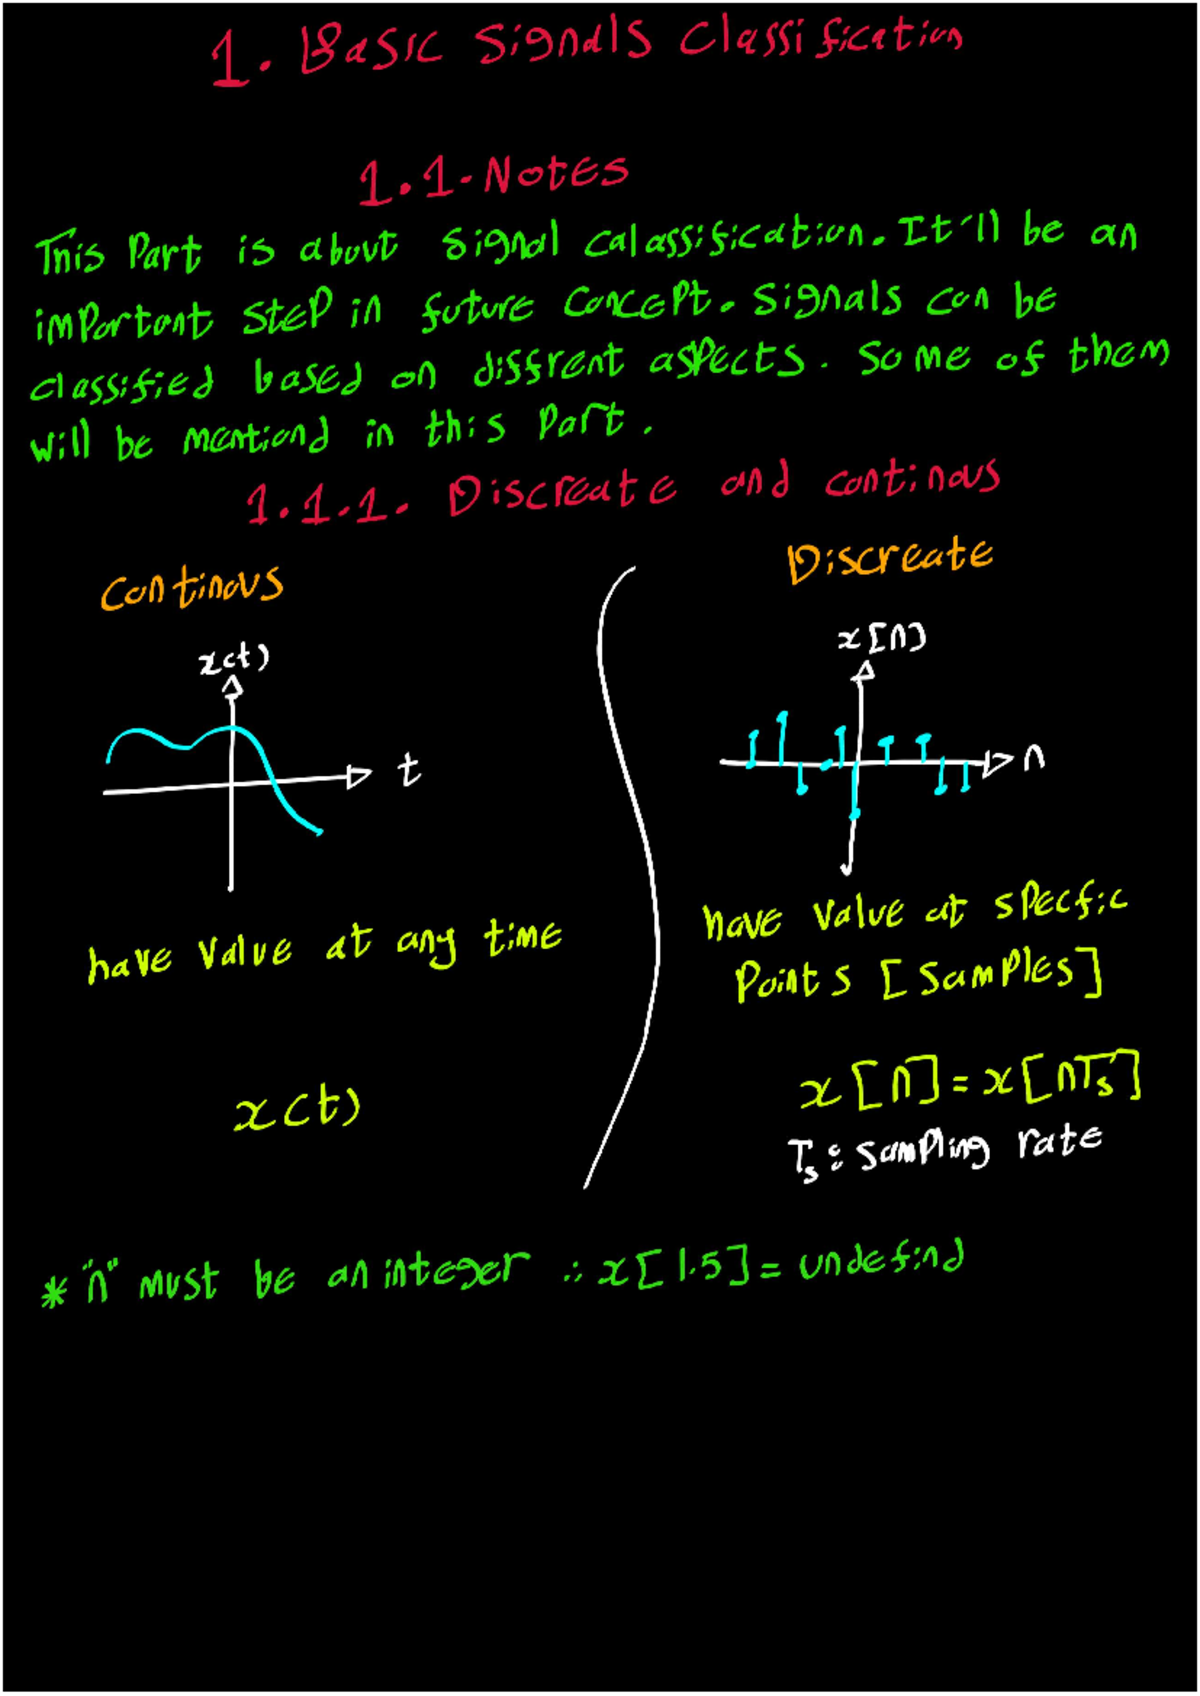 1. Basic Signals Classification
1.1. Notes
This Part is about Signal calassification. It'll be an
important Step in future Concept. Signals can be
classified based on diffrent aspects. Some of them
will be mentiond in this Part.
1.1.1. Discreate and continous
Continous
x(t)
t
have Value at any time
x(t)
Discreate
x[n]
n
have Value at specfic
Points [Samples]
x[n]=x[nTs]
Ts: sampling rate
* "n" must be an integer ∴ x[1.5]= undefind